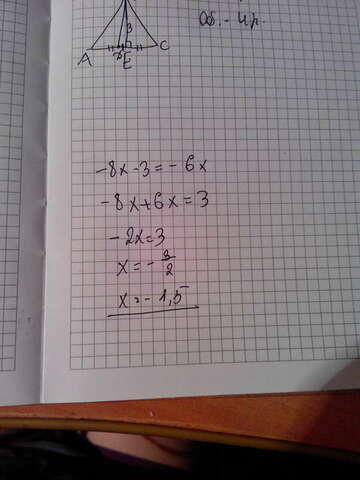 Об. - 4 р.
B
A E C
-8x - 3 = - 6x
-8x + 6x = 3
- 2x = 3
x = - 3/2
x = - 1,5